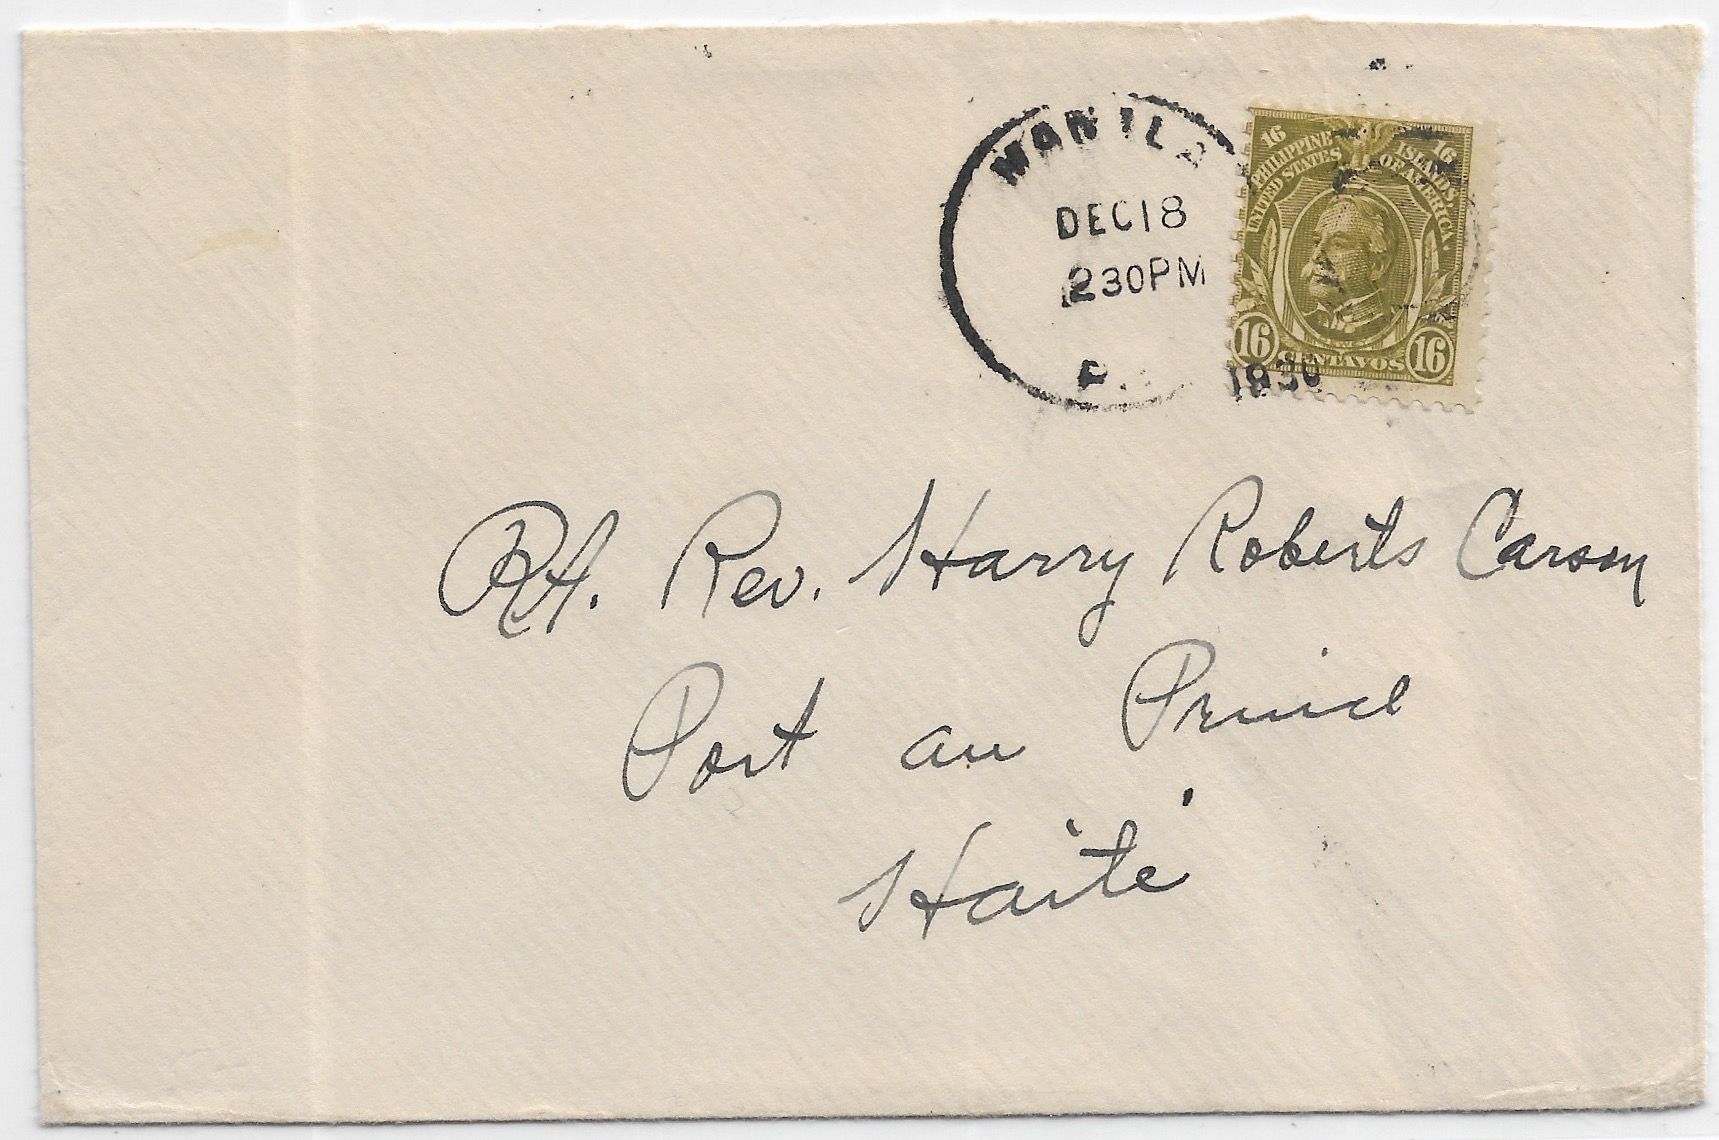 MANILA
DEC 18
230PM
P.
1930
16 16
PHILIPPINE ISLANDS
UNITED STATES OF AMERICA
16 CENTAVOS 16
Rt. Rev. Harry Roberts Carson
Port au Prince
Haiti